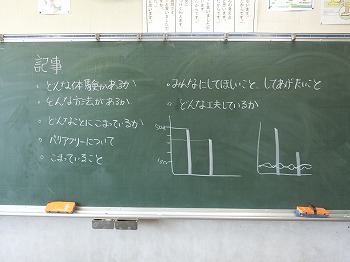 記事
・どんな体験があるか
・どんな方法があるか
・どんなことにこまっているか
・バリアフリーについて
・こまっていること
・みんなにしてほしいこと してあげたいこと
・どんな工夫しているか